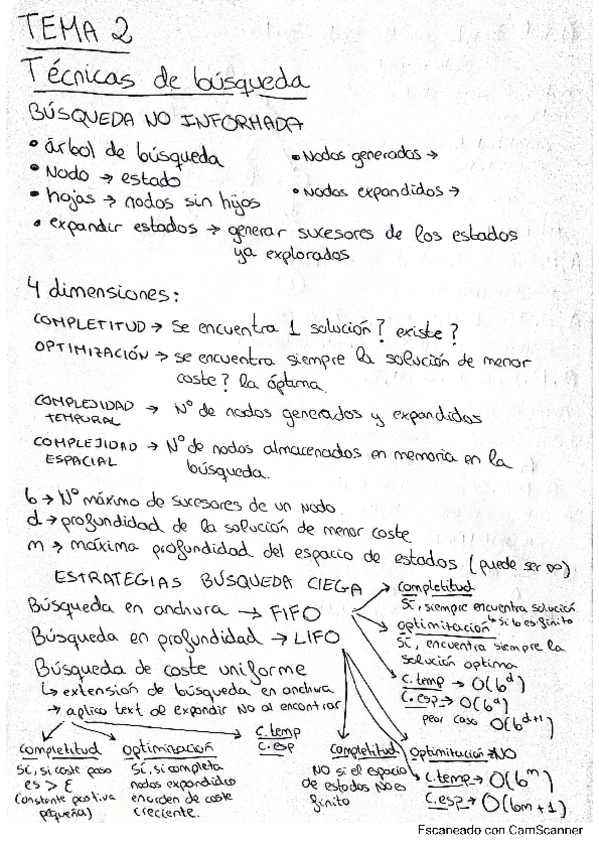 TEMA 2
Técnicas de búsqueda
BÚSQUEDA NO INFORMADA
• árbol de búsqueda
• Nodo → estado
• hojas → nodos sin hijos
• expandir estados → generar sucesores de los estados
ya explorados
• Nodos generados →
• Nodos expandidos →
4 dimensiones:
COMPLETITUD → se encuentra 1 solución? existe?
OPTIMIZACIÓN → se encuentra siempre la solución de menor
coste? la óptima
COMPLEJIDAD TEMPORAL → Nº de nodos generados y expandidos
COMPLEJIDAD ESPACIAL → Nº de nodos almacenados en memoria en la
búsqueda.
b → Nº máximo de sucesores de un nodo
d → profundidad de la solución de menor coste
m → máxima profundidad del espacio de estados (puede ser ∞)
ESTRATEGIAS BÚSQUEDA CIEGA
Búsqueda en anchura → FIFO
completitud
Sí, siempre encuentra solución
↳ si b es finito
optimización
Sí, encuentra siempre la
solución optima
c.temp → O(b^d)
c.esp → O(b^d)
peor caso O(b^d+1)
Búsqueda en profundidad → LIFO
Búsqueda de coste uniforme
↳ extension de búsqueda en anchura
→ aplica text al expandir NO al encontrar
completitud
Sí, si coste paso
es > ε
(constante positiva
pequeña)
optimización
Sí, si completa
nodos expandidos
en orden de coste
creciente.
c.temp
c.esp
completitud
NO si el espacio
de estados NO es
finito
Optimización → NO
c.temp → O(b^m)
c.esp → O(bm+1)
Escaneado con CamScanner